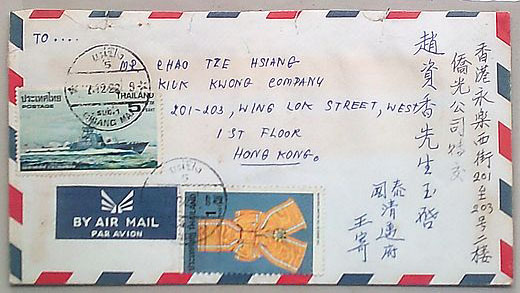 TO ....
MR CHAO TZE HSIANG
KIUK KWONG COMPANY
201-203, WING LOK STREET, WEST
1 ST FLOOR
HONG KONG.
ประเทศไทย
POSTAGE
THAILAND
5
CHIANG MAI
BY AIR MAIL
PAR AVION
香港永樂西街201至203号二楼
僑光公司
趙資香先生玉啓
泰国清邁府
王寄